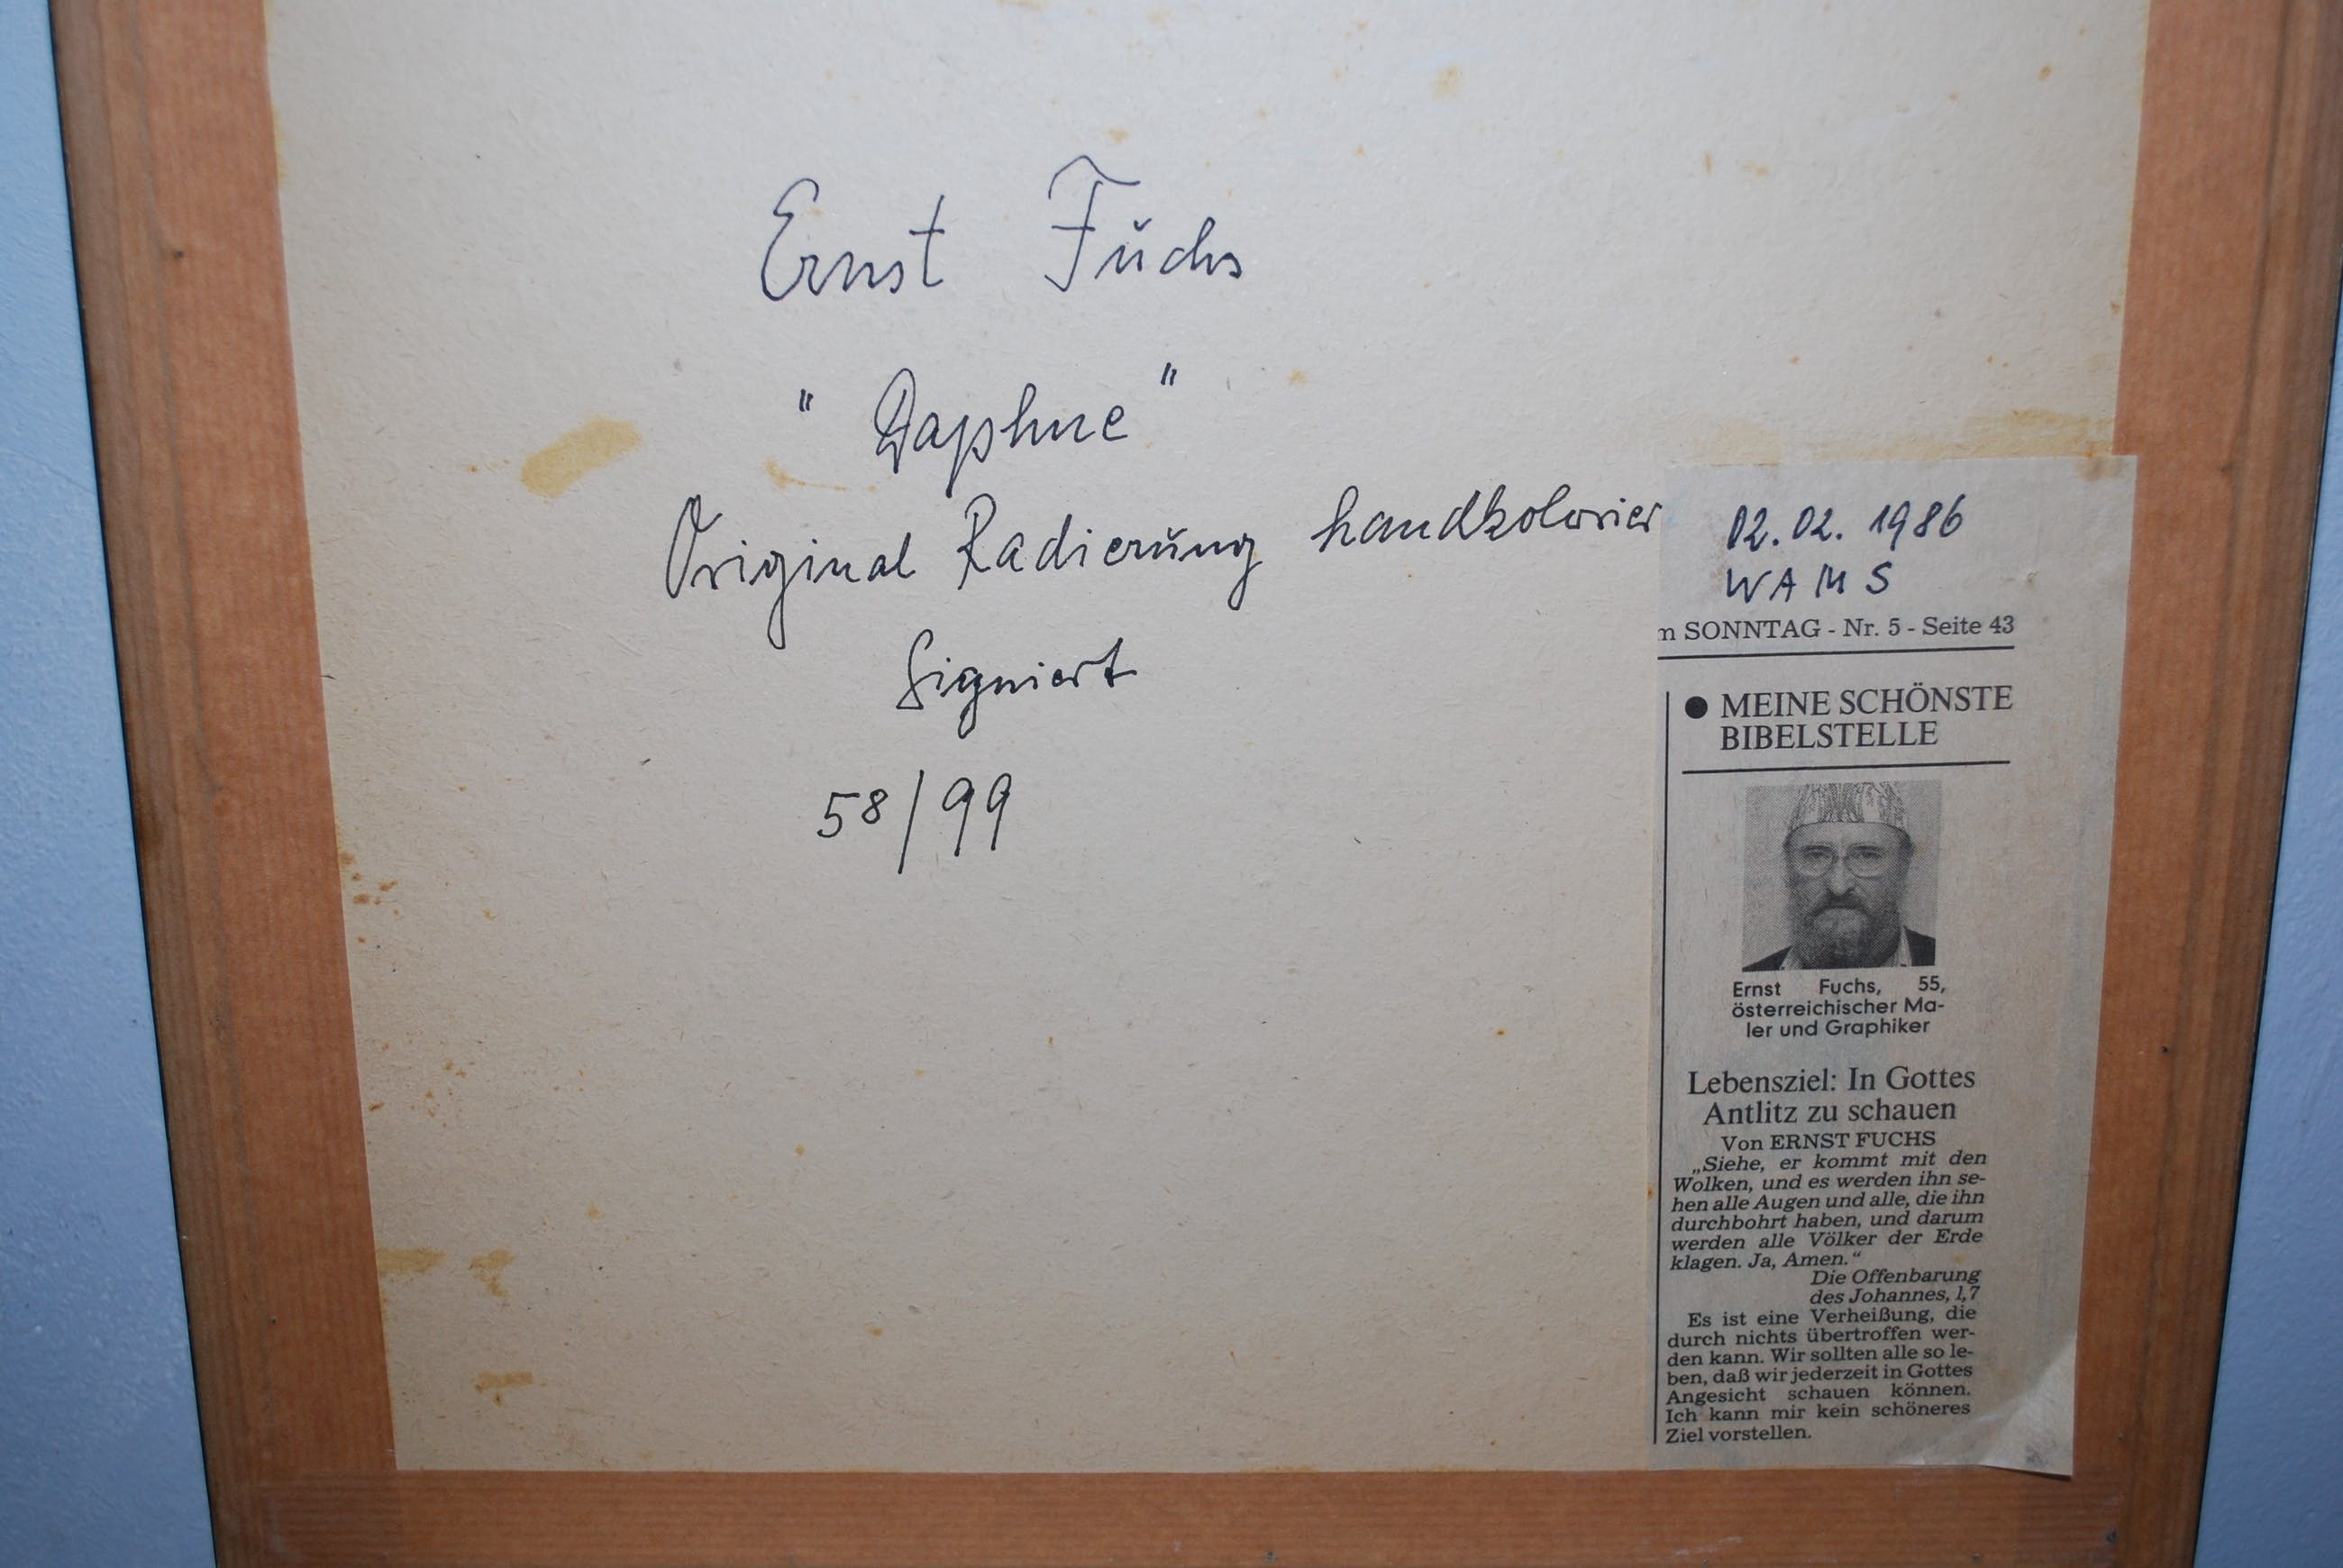 Ernst Fuchs
"Daphne"
Original Radierung handkolorier
Signiert
58/99
02.02.1986
WAMS
m SONNTAG - Nr. 5 - Seite 43
● MEINE SCHÖNSTE
BIBELSTELLE
Ernst Fuchs, 55,
österreichischer Ma-
ler und Graphiker
Lebensziel: In Gottes
Antlitz zu schauen
Von ERNST FUCHS
„Siehe, er kommt mit den
Wolken, und es werden ihn se-
hen alle Augen und alle, die ihn
durchbohrt haben, und darum
werden alle Völker der Erde
klagen. Ja, Amen.“
Die Offenbarung
des Johannes, 1,7
Es ist eine Verheißung, die
durch nichts übertroffen wer-
den kann. Wir sollten alle so le-
ben, daß wir jederzeit in Gottes
Angesicht schauen können.
Ich kann mir kein schöneres
Ziel vorstellen.